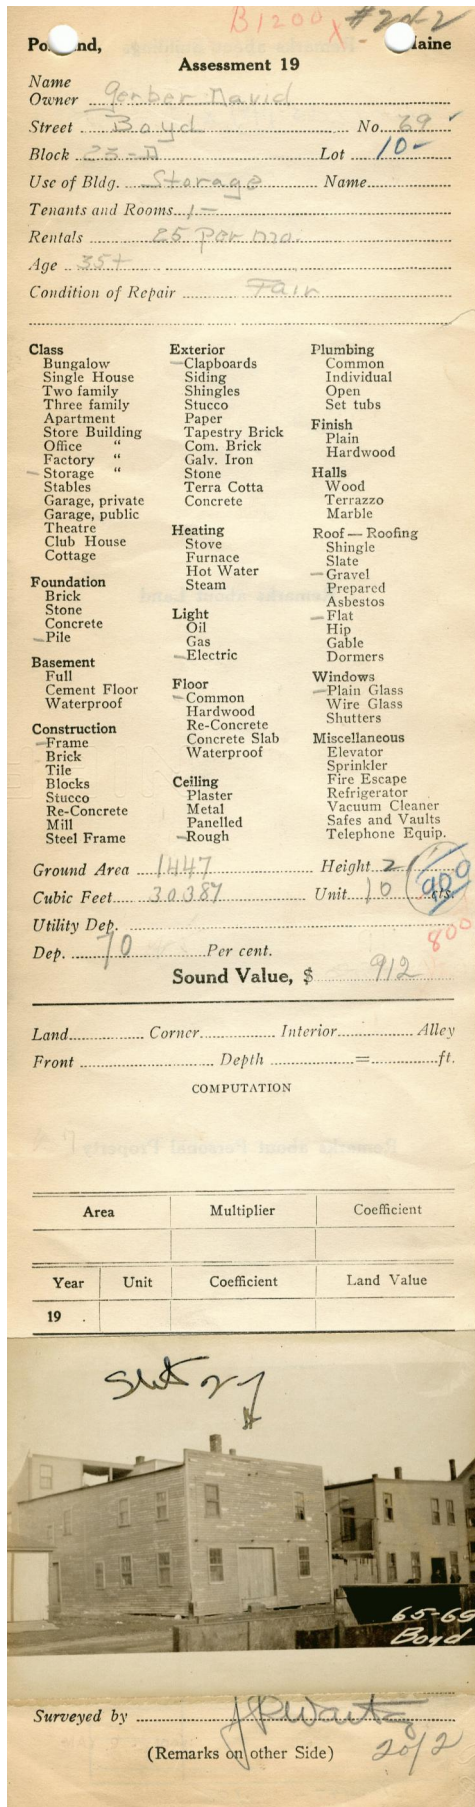 B1200 x #2of2
Portland, Maine
Assessment 19
Name
Owner Gerber David
Street Boyd No. 69
Block 23-D Lot 10-
Use of Bldg. Storage Name
Tenants and Rooms 1-
Rentals 25 per mo.
Age 35+
Condition of Repair Fair
Class
Bungalow
Single House
Two family
Three family
Apartment
Store Building
Office "
Factory "
- Storage "
Stables
Garage, private
Garage, public
Theatre
Club House
Cottage
Foundation
Brick
Stone
Concrete
- Pile
Basement
Full
Cement Floor
Waterproof
Construction
- Frame
Brick
Tile
Blocks
Stucco
Re-Concrete
Mill
Steel Frame
Exterior
- Clapboards
Siding
Shingles
Stucco
Paper
Tapestry Brick
Com. Brick
Galv. Iron
Stone
Terra Cotta
Concrete
Heating
Stove
Furnace
Hot Water
Steam
Light
Oil
Gas
- Electric
Floor
- Common
Hardwood
Re-Concrete
Concrete Slab
Waterproof
Ceiling
Plaster
Metal
Panelled
- Rough
Plumbing
Common
Individual
Open
Set tubs
Finish
Plain
Hardwood
Halls
Wood
Terrazzo
Marble
Roof — Roofing
Shingle
Slate
- Gravel
Prepared
Asbestos
- Flat
Hip
Gable
Dormers
Windows
- Plain Glass
Wire Glass
Shutters
Miscellaneous
Elevator
Sprinkler
Fire Escape
Refrigerator
Vacuum Cleaner
Safes and Vaults
Telephone Equip.
Ground Area 1447 Height 21
Cubic Feet 30387 Unit 10 cts.
900
Utility Dep.
800
Dep. 70 Per cent.
Sound Value, $ 912
Land Corner Interior Alley
Front Depth = ft.
COMPUTATION
Area Multiplier Coefficient
Year Unit Coefficient Land Value
19 .
65-69
Boyd
Surveyed by
(Remarks on other Side) 20/2